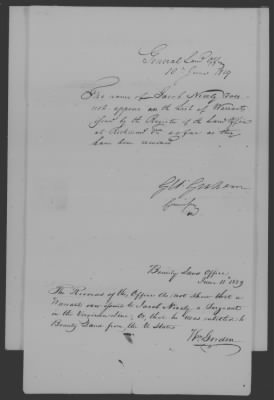 General Land Office
10th June 1829
The name of Jacob Ninely does
not appear on the list of Warrants
filed by the Register of the Land Office
at Richmond Va so far as they
have been received
Geo: Graham
Bounty Land Office
June 11th 1829
The Records of this Office do not show that a
Warrant was issued to Jacob Ninely a Sergeant
in the Virginia Line; Or, that he was entitled to
Bounty Land from the U States
Wm Gordon